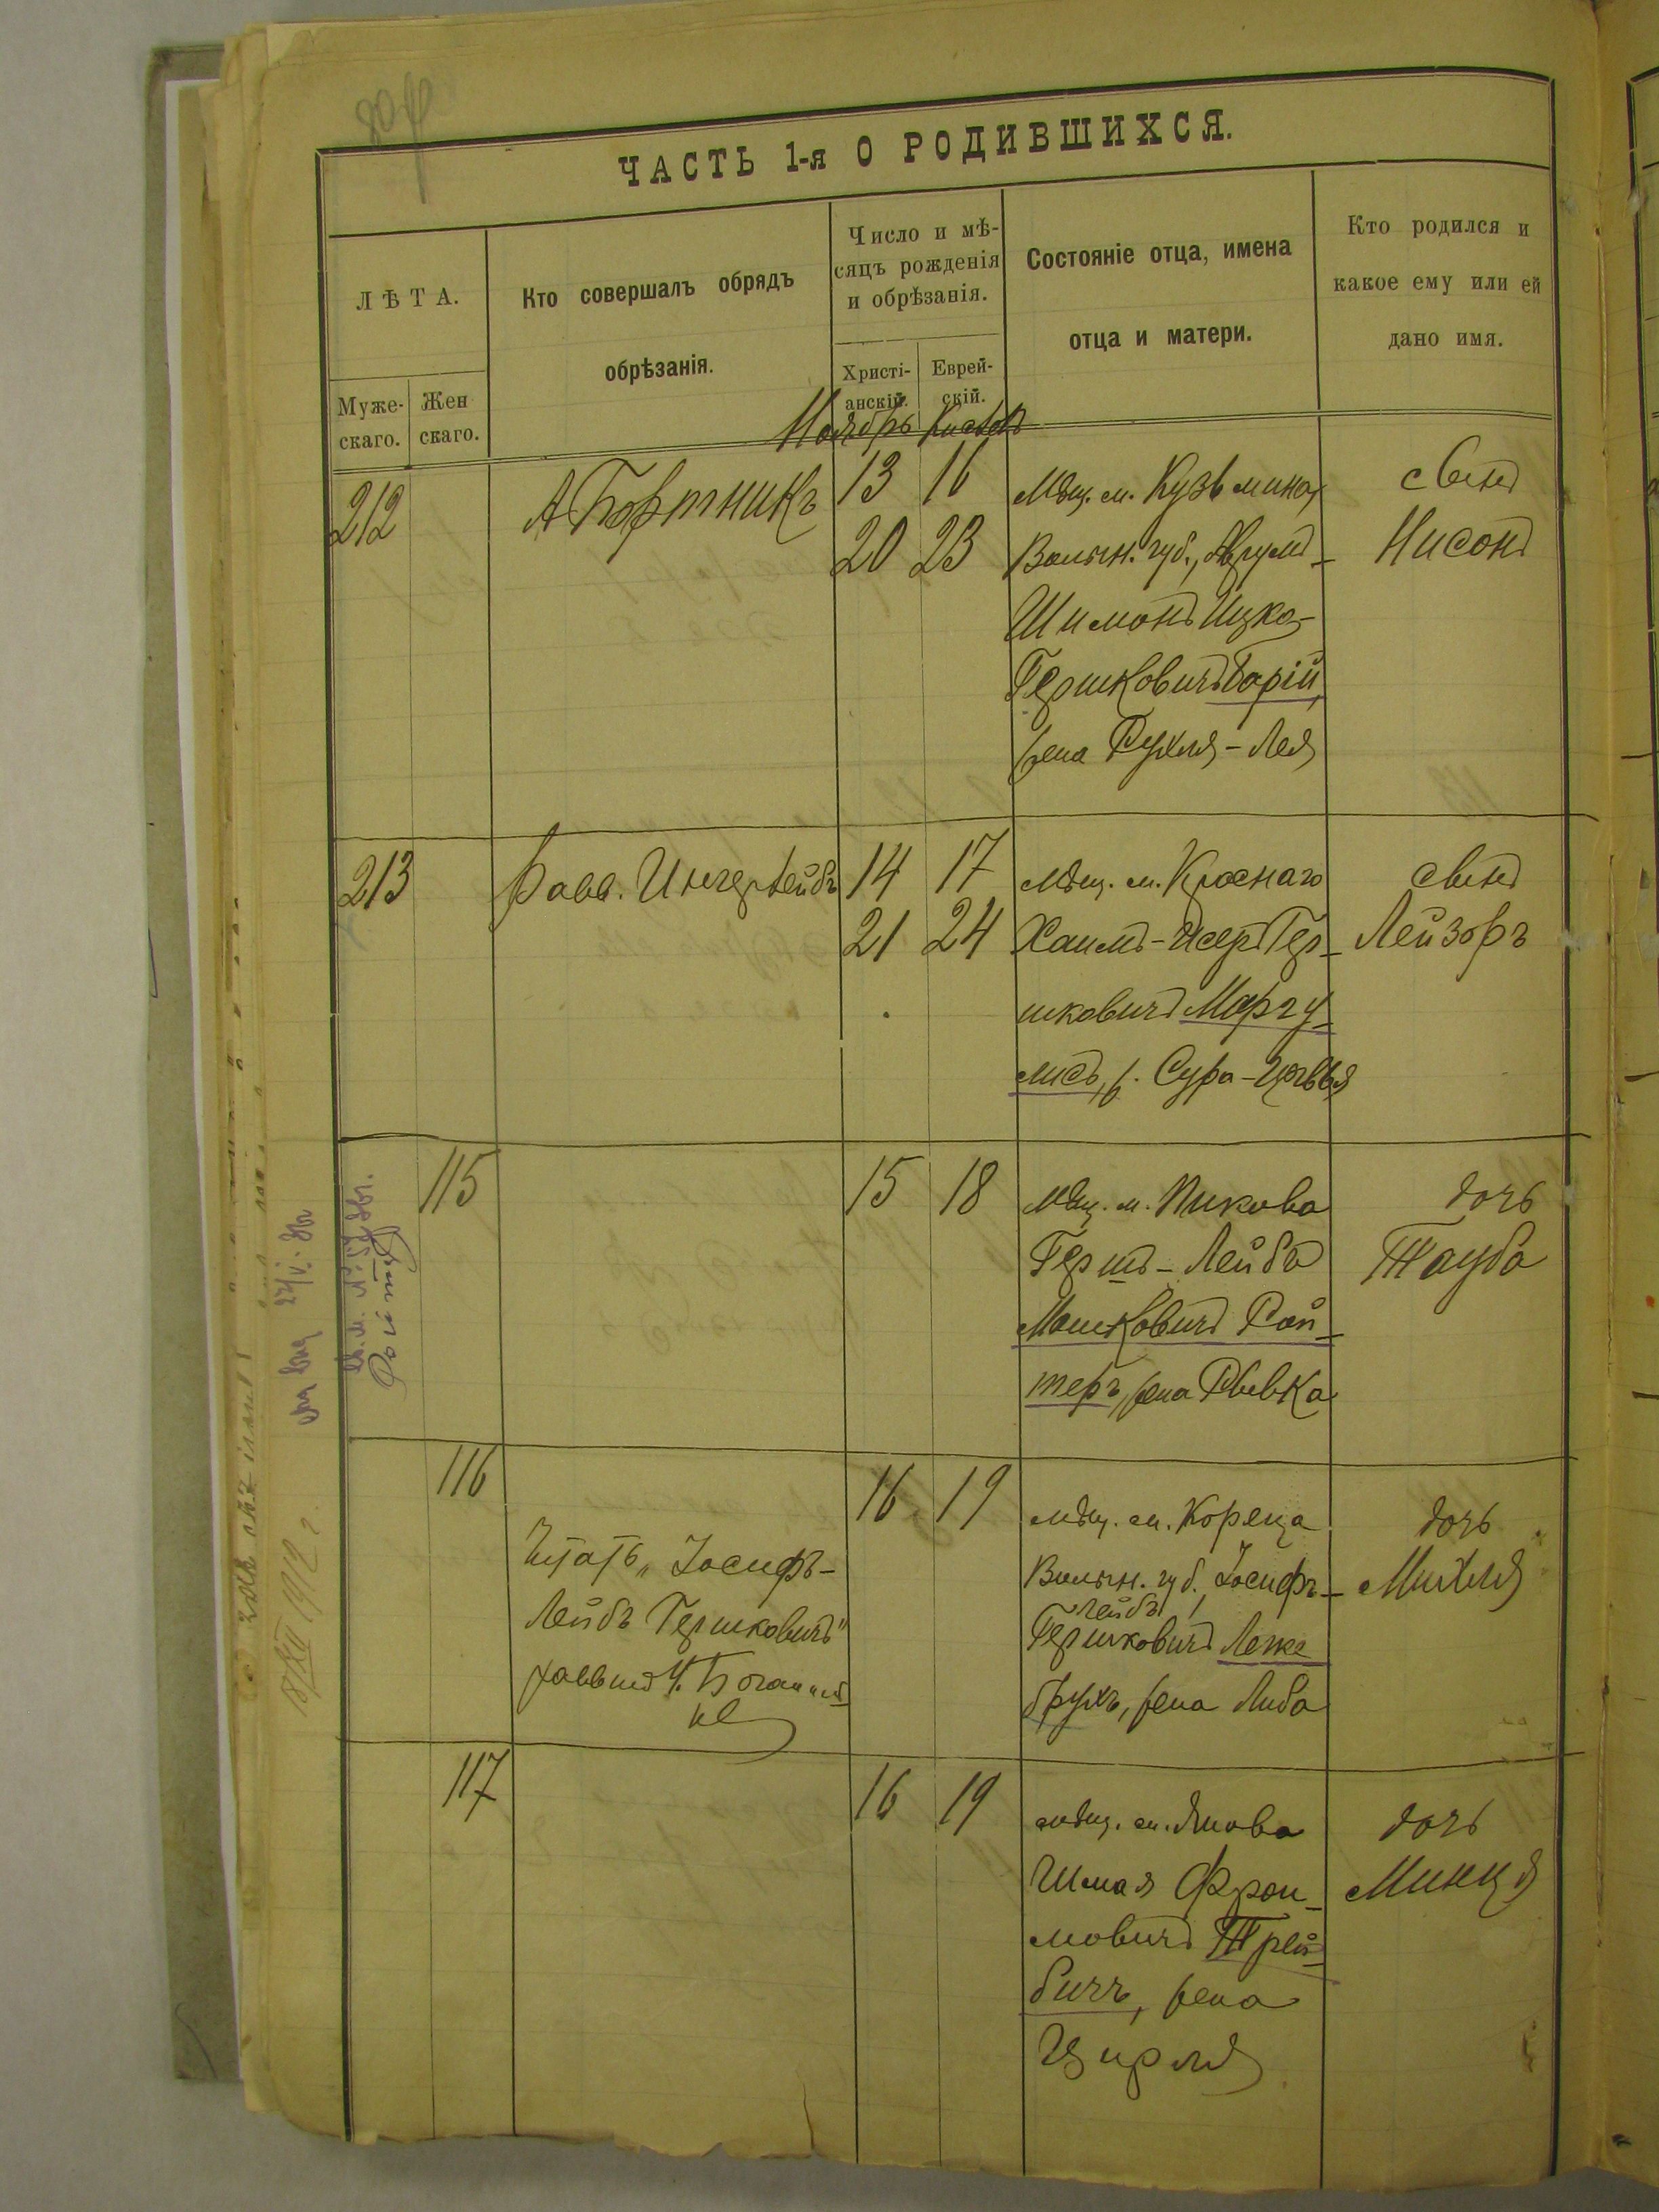 ЧАСТЬ 1-я О РОДИВШИХСЯ.
ЛѢТА.
Муже-
скаго.
Жен
скаго.
Кто совершалъ обрядъ
обрѣзанія.
Число и мѣ-
сяцъ рожденія
и обрѣзанія.
Христі-
анскій.
Еврей-
скій.
Состояніе отца, имена
отца и матери.
Кто родился и
какое ему или ей
дано имя.
Ноябрь Кислевъ
212
А Бортникъ
13 16
20 23
мѣщ. м. Кузьмина,
Волын. губ., Аврумъ-
Шимонъ Ицко-
Гершковичъ Барій,
жена Рухля-Лея
сынъ
Нисонъ
213
Равв. Ингерлейбъ
14 17
21 24
мѣщ. м. Краснаго
Хаимъ-Исеръ Гер-
шковичъ Маргу-
лисъ, ж. Сура-Цивья
сынъ
Лейзоръ
115
15 18
мѣщ. м. Пикова
Гершъ-Лейбъ
Мошковичъ Рой-
теръ, жена Ривка
дочь
Тауба
116
Читать „Іосифъ-
Лейбъ Гершковичъ"
раввинъ
16 19
мѣщ. м. Кореца
Волын. губ., Іосифъ-
Лейбъ
Гершковичъ Леже
брухъ, жена Либа
дочь
Михля
117
16 19
мѣщ. м. Янова
Шмая Фрои-
мовичъ Трей-
бичъ, жена
Цирля
дочь
Минця
1912 г.